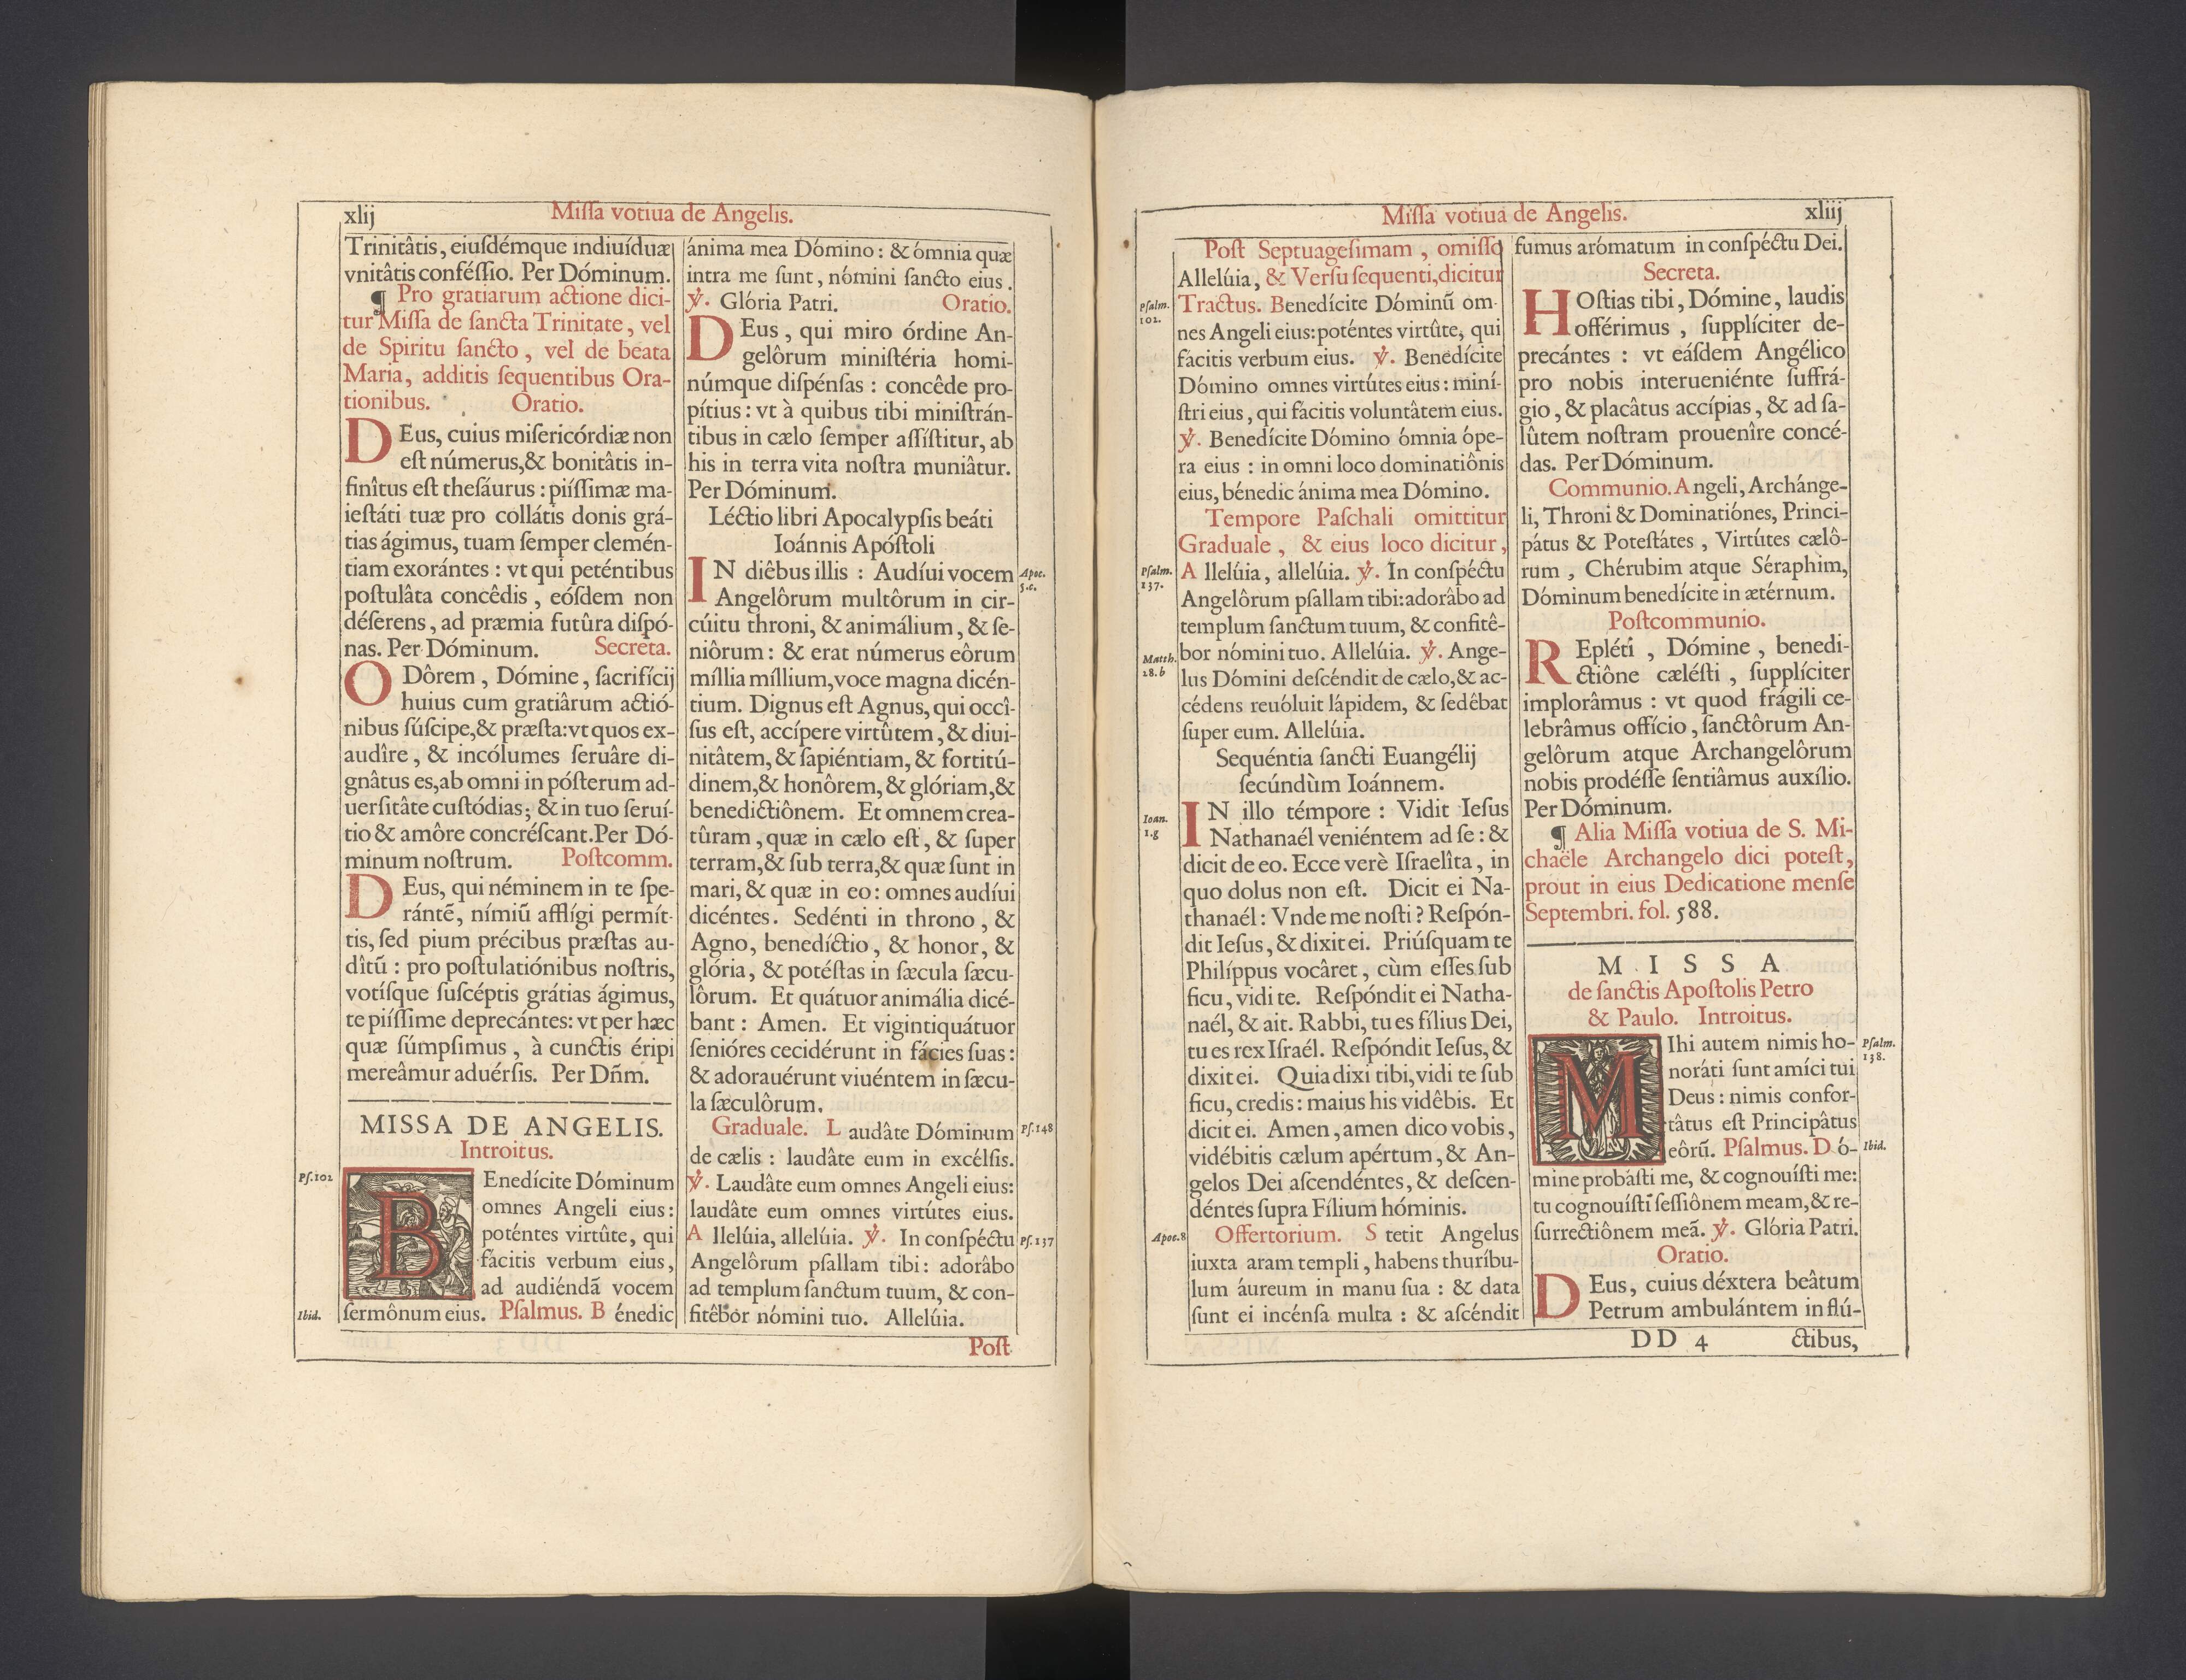 xlij
Miſſa votiua de Angelis.
Trinitâtis, eiuſdémque indiuíduæ
vnitâtis conféſſio. Per Dóminum.
¶ Pro gratiarum actione dici-
tur Miſſa de ſancta Trinitate, vel
de Spiritu ſancto, vel de beata
Maria, additis ſequentibus Ora-
tionibus. Oratio.
DEus, cuius miſericórdiæ non
eſt númerus,& bonitâtis in-
finîtus eſt theſáurus : piíſſimæ ma-
ieſtáti tuæ pro collátis donis grá-
tias ágimus, tuam ſemper clemén-
tiam exorántes : vt qui peténtibus
poſtulâta concêdis, eóſdem non
déſerens, ad præmia futûra diſpó-
nas. Per Dóminum. Secreta.
ODôrem, Dómine, ſacrifícij
huius cum gratiârum actió-
nibus ſúſcipe,& præſta:vt quos ex-
audîre, & incólumes ſeruâre di-
gnâtus es,ab omni in póſterum ad-
uerſitâte cuſtódias; & in tuo ſeruí-
tio & amôre concréſcant.Per Dó-
minum noſtrum. Poſtcomm.
DEus, qui néminem in te ſpe-
rántẽ, nímiũ afflígi permít-
tis, ſed pium précibus præſtas au-
dîtũ : pro poſtulatiónibus noſtris,
votíſque ſuſcéptis grátias ágimus,
te piíſſime deprecántes: vt per hæc
quæ ſúmpſimus, à cunctis éripi
mereâmur aduérſis. Per Dñm.
MISSA DE ANGELIS.
Introitus.
Pſ.102
BEnedícite Dóminum
omnes Angeli eius:
poténtes virtûte, qui
fácitis verbum eius,
ad audiéndã vocem
Ibid.
ſermônum eius. Pſalmus. B énedic
ánima mea Dómino : & ómnia quæ
intra me ſunt, nómini ſancto eius.
℣. Glória Patri. Oratio.
DEus, qui miro órdine An-
gelôrum miniſtéria homi-
númque diſpénſas : concêde pro-
pítius : vt à quibus tibi miniſtrán-
tibus in cælo ſemper aſſíſtitur, ab
his in terra vita noſtra muniâtur.
Per Dóminum.
Léctio libri Apocalypſis beáti
Ioánnis Apóſtoli
Apoc.
5.c.
IN diêbus illis : Audíui vocem
Angelôrum multôrum in cir-
cúitu throni, & animálium, & ſe-
niôrum : & erat númerus eôrum
míllia míllium,voce magna dicén-
tium. Dignus eſt Agnus, qui occî-
ſus eſt, accípere virtûtem, & diui-
nitâtem, & ſapiéntiam, & fortitú-
dinem,& honôrem, & glóriam,&
benedictiônem. Et omnem crea-
tûram, quæ in cælo eſt, & ſuper
terram,& ſub terra,& quæ ſunt in
mari, & quæ in eo : omnes audíui
dicéntes. Sedénti in throno, &
Agno, benedíctio, & honor, &
glória, & potéſtas in ſæcula ſæcu-
lôrum. Et quátuor animália dicé-
bant : Amen. Et vigintiquátuor
ſenióres cecidérunt in fácies ſuas :
& adorauérunt viuéntem in ſæcu-
la ſæculôrum.
Pſ.148
Graduale. L audâte Dóminum
de cælis : laudâte eum in excélſis.
℣. Laudâte eum omnes Angeli eius:
laudâte eum omnes virtútes eius.
Pſ.137
A llelúia, alleluía. ℣. In conſpéctu
Angelôrum pſallam tibi : adorâbo
ad templum ſanctum tuum, & con-
fitêbor nómini tuo. Allelúia.
Poſt
Miſſa votiua de Angelis.
xliij
Poſt Septuageſimam, omiſſo
Allelúia, & Verſu ſequenti,dicitur
Pſalm.
102.
Tractus. Benedícite Dóminũ om-
nes Angeli eius:poténtes virtûte, qui
fácitis verbum eius. ℣. Benedícite
Dómino omnes virtútes eius : miní-
ſtri eius, qui fácitis voluntâtem eius.
℣. Benedícite Dómino ómnia ópe-
ra eius : in omni loco dominatiônis
eius, bénedic ánima mea Dómino.
Tempore Paſchali omittitur
Graduale, & eius loco dicitur,
Pſalm.
137.
A llelúia, allelúia. ℣. In conſpéctu
Angelôrum pſallam tibi:adorâbo ad
templum ſanctum tuum, & confitê-
Matth.
28.b
bor nómini tuo. Allelúia. ℣. Ange-
lus Dómini deſcéndit de cælo,& ac-
cédens reuóluit lápidem, & ſedêbat
ſuper eum. Allelúia.
Sequéntia ſancti Euangélij
ſecúndùm Ioánnem.
Ioan.
1.g
IN illo témpore : Vidit Ieſus
Nathanaél veniéntem ad ſe : &
dicit de eo. Ecce verè Iſraelîta, in
quo dolus non eſt. Dicit ei Na-
thanaél : Vnde me noſti ? Reſpón-
dit Ieſus, & dixit ei. Priúſquam te
Philíppus vocâret, cùm eſſes ſub
ficu, vidi te. Reſpóndit ei Natha-
naél, & ait. Rabbi, tu es fílius Dei,
tu es rex Iſraél. Reſpóndit Ieſus, &
dixit ei. Quia dixi tibi,vidi te ſub
ficu, credis : maius his vidêbis. Et
dicit ei. Amen, amen dico vobis,
vidébitis cælum apértum, & An-
gelos Dei aſcendéntes, & deſcen-
déntes ſupra Fílium hóminis.
Apoc.8
Offertorium. S tetit Angelus
iuxta aram templi, habens thuríbu-
lum áureum in manu ſua : & data
ſunt ei incénſa multa : & aſcéndit
fumus arómatum in conſpéctu Dei.
Secreta.
HOſtias tibi, Dómine, laudis
offérimus, ſupplíciter de-
precántes : vt eáſdem Angélico
pro nobis interueniénte ſuffrá-
gio, & placâtus accípias, & ad ſa-
lûtem noſtram prouenîre concé-
das. Per Dóminum.
Communio. Angeli, Archánge-
li, Throni & Dominatiónes, Princi-
pátus & Poteſtátes, Virtútes cælô-
rum, Chérubim atque Séraphim,
Dóminum benedícite in ætérnum.
Poſtcommunio.
REpléti, Dómine, benedi-
ctiône cæléſti, ſupplíciter
implorâmus : vt quod frágili ce-
lebrâmus offício, ſanctôrum An-
gelôrum atque Archangelôrum
nobis prodéſſe ſentiâmus auxílio.
Per Dóminum.
¶ Alia Miſſa votiua de S. Mi-
chaële Archangelo dici poteſt,
prout in eius Dedicatione menſe
Septembri. fol. 588.
MISSA
de ſanctis Apoſtolis Petro
& Paulo. Introitus.
Pſalm.
138.
MIhi autem nimis ho-
noráti ſunt amíci tui
Deus : nimis confor-
tâtus eſt Principâtus
Ibid.
eôrũ. Pſalmus. D ó-
mine probáſti me, & cognouíſti me:
tu cognouíſti ſeſſiônem meam,& re-
ſurrectiônem meã. ℣. Glória Patri.
Oratio.
DEus, cuius déxtera beâtum
Petrum ambulántem in flú-
DD 4
ctibus,